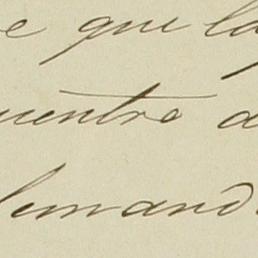 e que la
uentre a
lemand